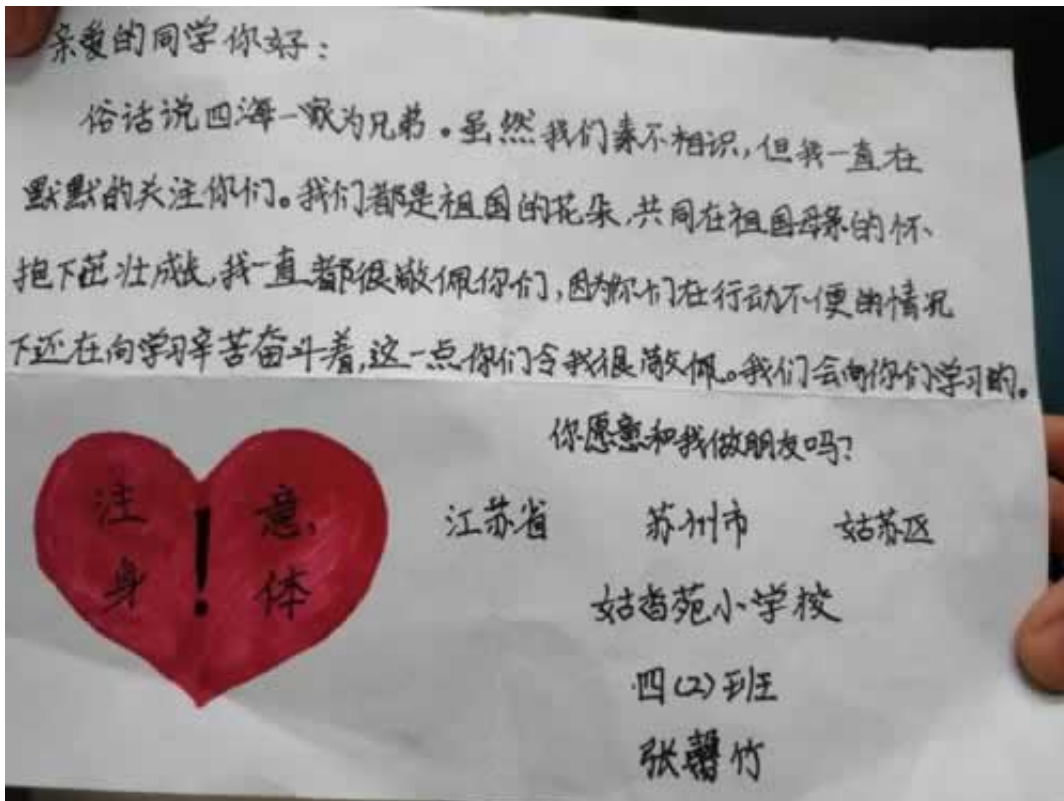 亲爱的同学你好：
俗话说四海一家为兄弟。虽然我们素不相识，但我一直在
默默的关注你们。我们都是祖国的花朵，共同在祖国母亲的怀
抱下茁壮成长，我一直都很敬佩你们，因为你们在行动不便的情况
下还在向学习辛苦奋斗着，这一点你们令我很敬佩。我们会向你们学习的。
你愿意和我做朋友吗？
注意，
身！体
江苏省 苏州市 姑苏区
姑香苑小学校
四(2)班
张馨竹